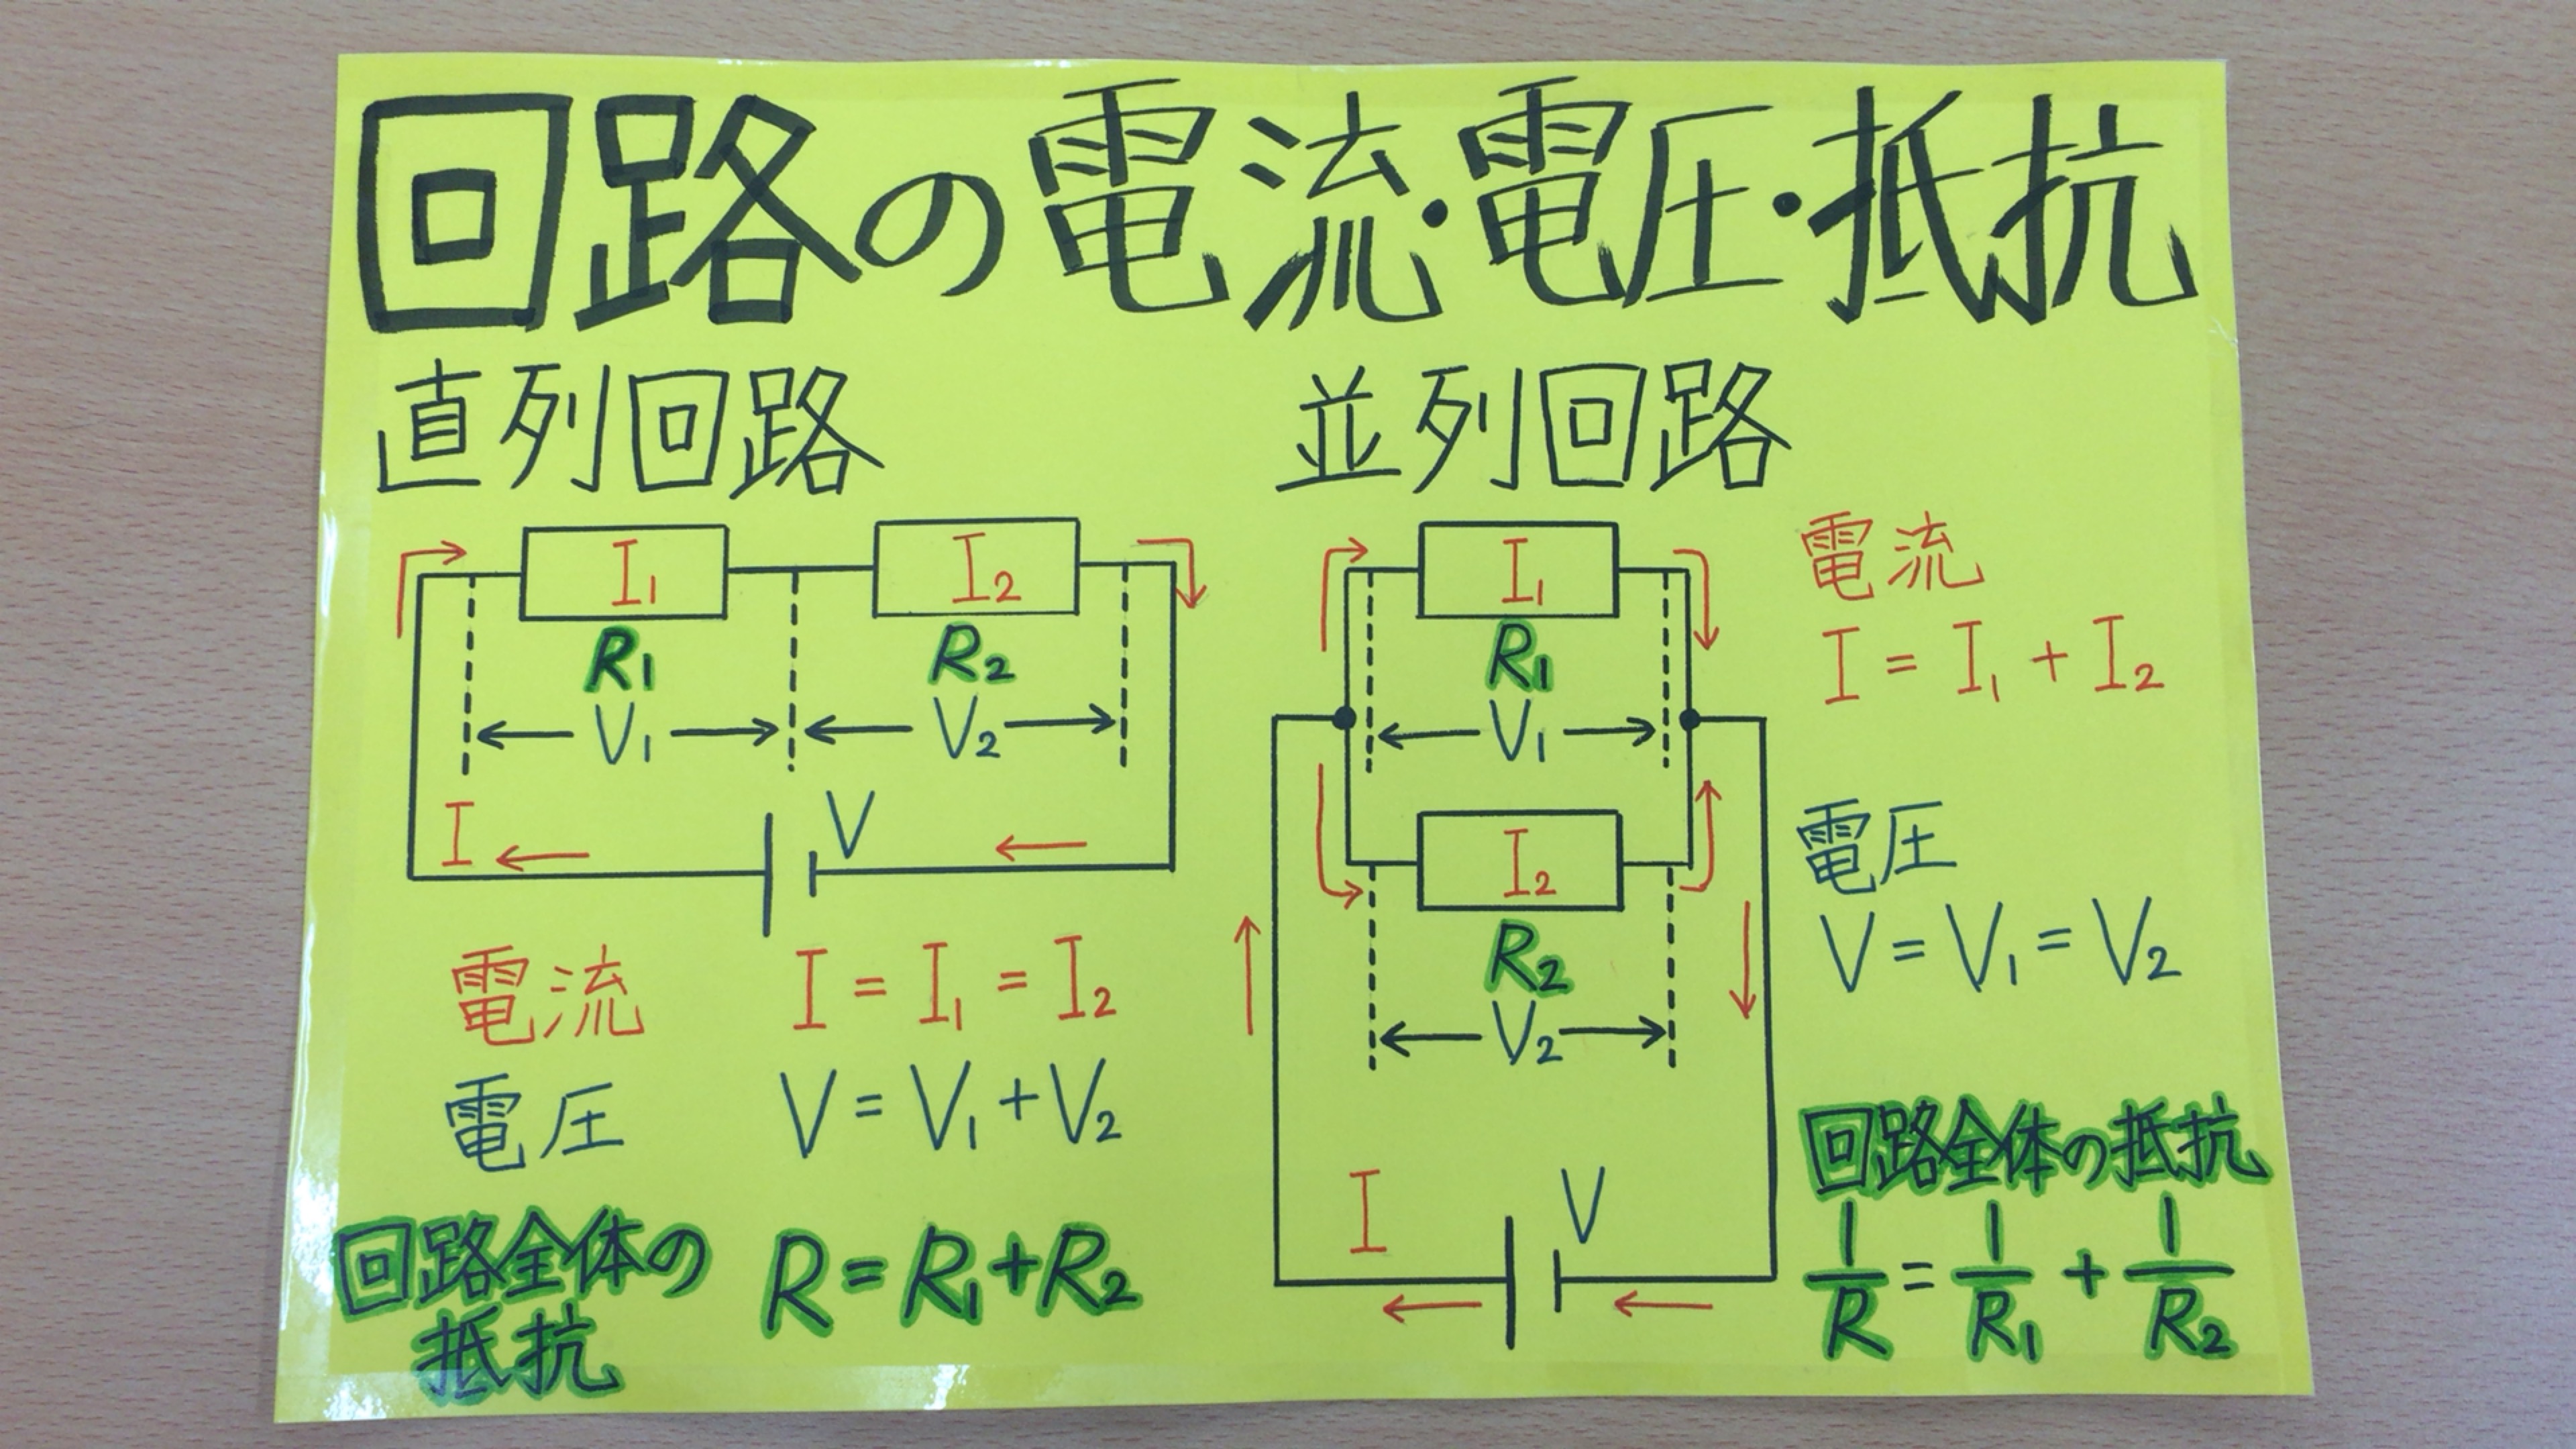 回路の電流・電圧・抵抗
直列回路
I₁
I₂
R₁
R₂
V₁
V₂
I
V
電流 I = I₁ = I₂
電圧 V = V₁ + V₂
回路全体の
抵抗
R = R₁ + R₂
並列回路
I₁
R₁
V₁
I₂
R₂
V₂
I
V
電流
I = I₁ + I₂
電圧
V = V₁ = V₂
回路全体の抵抗
1/R = 1/R₁ + 1/R₂